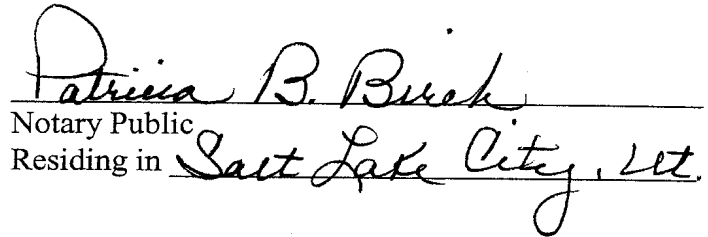 Patricia B. Burch
Notary Public
Residing in Salt Lake City, Ut.